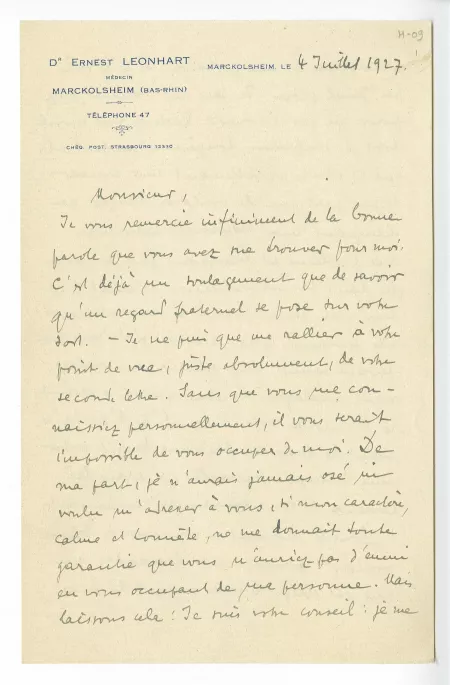 H-09
Dr ERNEST LEONHART
MÉDECIN
MARCKOLSHEIM (BAS-RHIN)
TÉLÉPHONE 47
CHÈQ. POST. STRASBOURG
MARCKOLSHEIM, LE 4 Juillet 1927.
Monsieur,
Je vous remercie infiniment de la bonne
parole que vous avez su trouver pour moi.
C'est déjà un soulagement que de savoir
qu'un regard fraternel se pose sur votre
sort. — Je ne puis que me rallier à votre
point de vue, juste absolument, de votre
seconde lettre. Sans que vous me con-
naissiez personnellement, il vous serait
impossible de vous occuper de moi. De
ma part, je n'aurais jamais osé ni
voulu m'adresser à vous, si mon caractère,
calme et honnête, ne me donnait toute
garantie que vous n'auriez pas d'ennui
en vous occupant de ma personne. Mais
laissons cela : Je suis votre conseil : je me